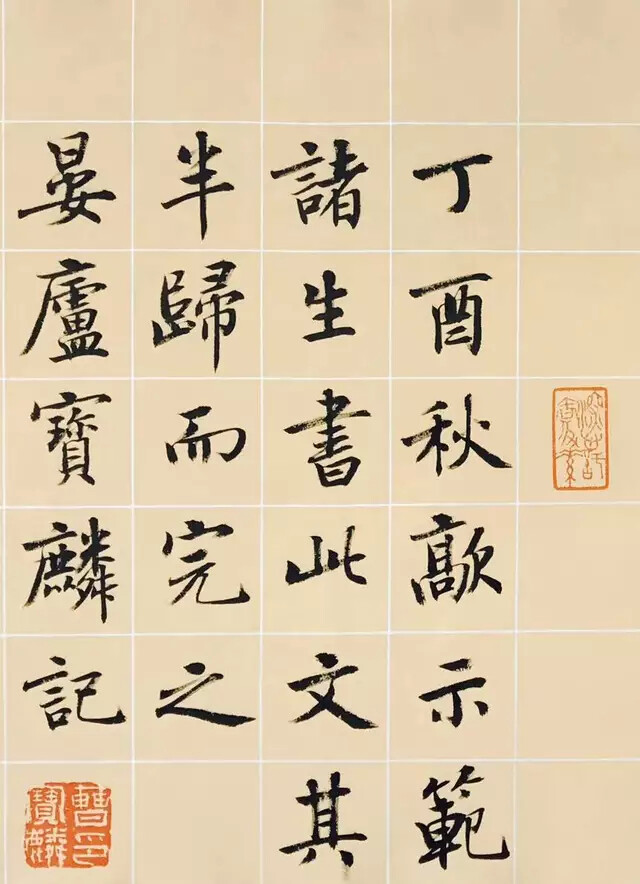 丁酉秋歊示範
諸生書此文其
半歸而完之
晏廬寶麟記
曹印寶麟